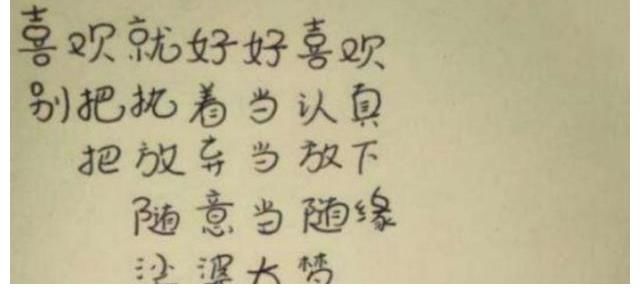 喜欢就好好喜欢
别把执着当认真
把放弃当放下
随意当随缘
婆大梦